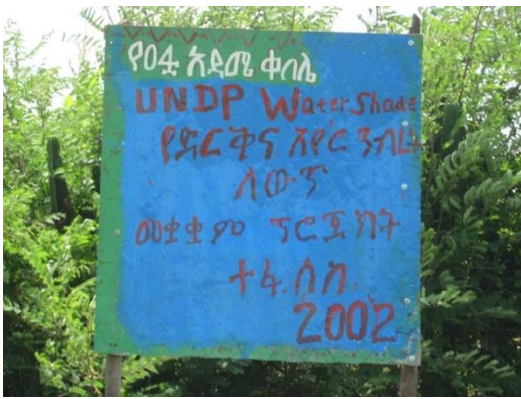 የዐፏ አዳሜ ቀበሌ
UNDP Water Shade
የድርቅና አየር
ለውጥ
መቋቋም ፕሮጄክት
ተፋሰስ
2002